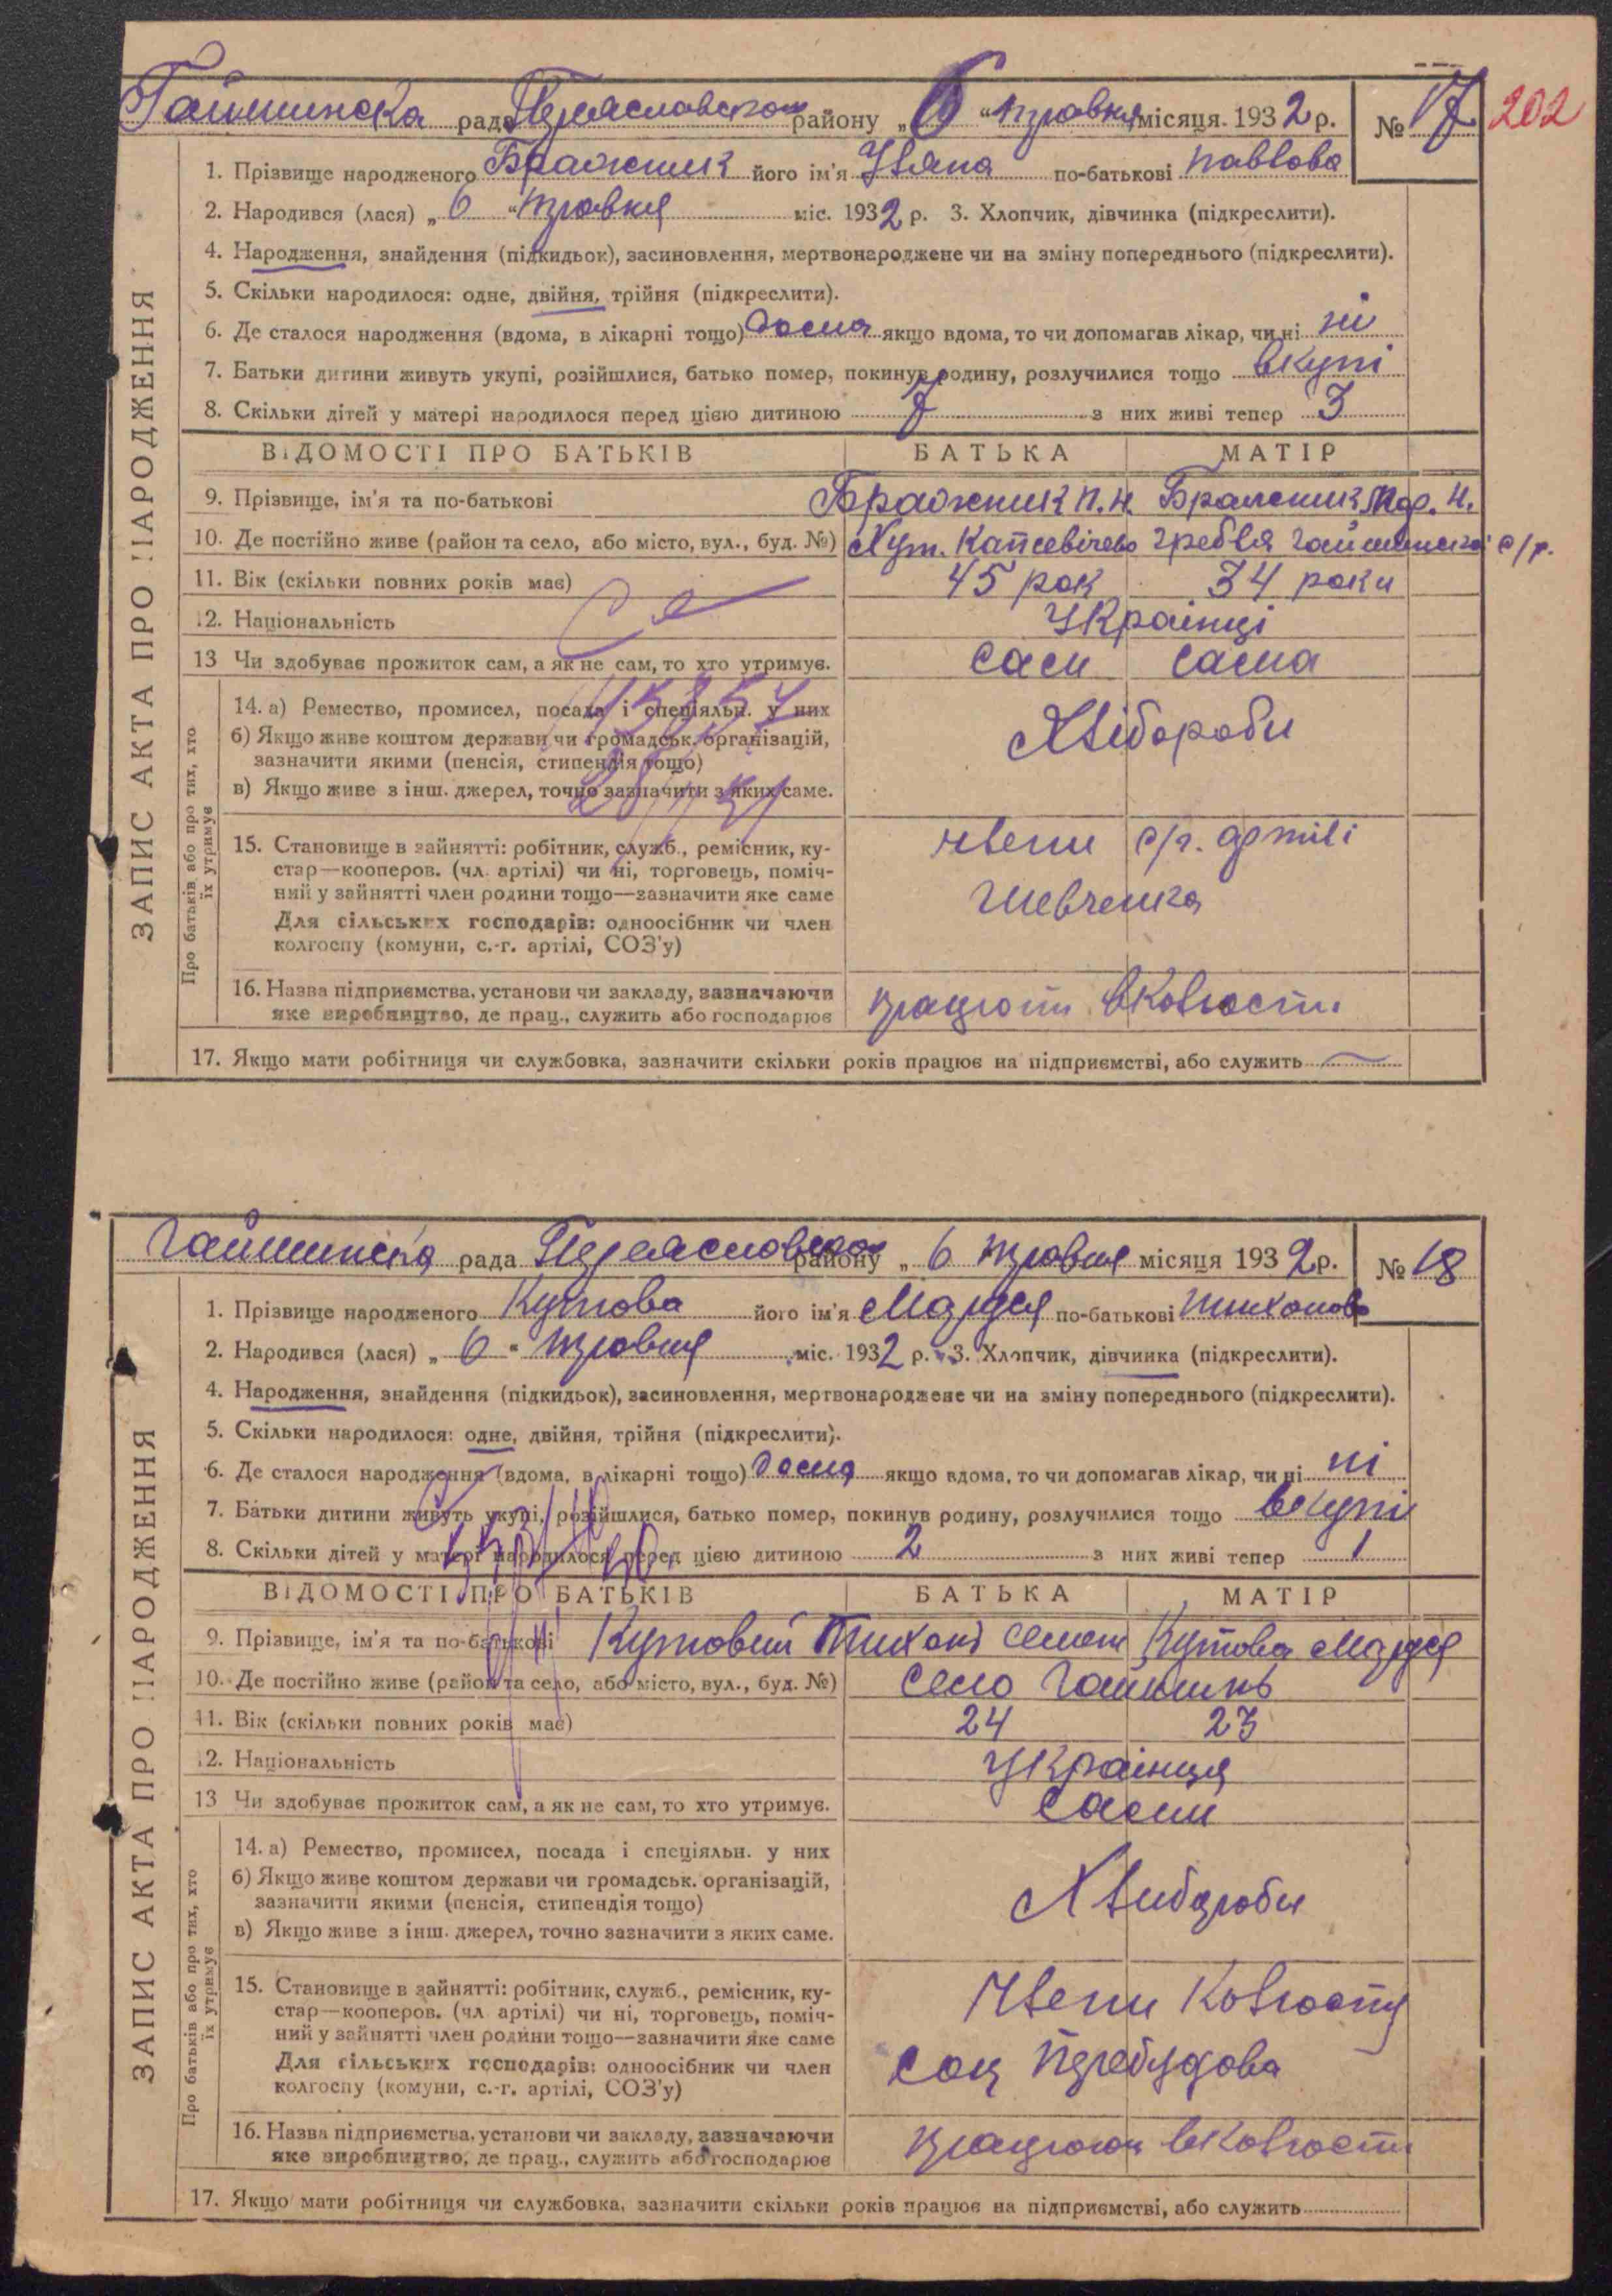 Гайшинска рада Переяславского району „ 6 “ травня місяця 1932 р. № 17 202
1. Прізвище народженого Бражник його ім'я Уляна по-батькові павлова
2. Народився (лася) „ 6 “ травня міс. 1932 р. 3. Хлопчик, дівчинка (підкреслити).
4. Народження, знайдення (підкидьок), засиновлення, мертвонароджене чи на зміну попереднього (підкреслити).
5. Скільки народилося: одне, двійня, трійня (підкреслити).
6. Де сталося народження (вдома, в лікарні тощо) дома якщо вдома, то чи допомагав лікар, чи ні ні
7. Батьки дитини живуть укупі, розійшлися, батько помер, покинув родину, розлучилися тощо вкупі
8. Скільки дітей у матері народилося перед цією дитиною 7 з них живі тепер 3
ВІДОМОСТІ ПРО БАТЬКІВ БАТЬКА МАТІР
9. Прізвище, ім'я та по-батькові Бражник П. Н. Бражник Мар. Н.
10. Де постійно живе (район та село, або місто, вул., буд. №) Хут. гребля Гайшинська с/р.
11. Вік (скільки повних років має) 45 рок 34 роки
12. Національність Українці
13 Чи здобуває прожиток сам, а як не сам, то хто утримує. сам сама
14. а) Ремество, промисел, посада і спеціяльн. у них
б) Якщо живе коштом держави чи громадськ. організацій,
зазначити якими (пенсія, стипендія тощо)
в) Якщо живе з інш. джерел, точно зазначити з яких саме.
Хліборобы
15. Становище в зайнятті: робітник, служб., ремісник, ку-
стар—кооперов. (чл. артілі) чи ні, торговець, поміч-
ний у зайнятті член родини тощо—зазначити яке саме
Для сільських господарів: одноосібник чи член
колгоспу (комуни, с.-г. артілі, СОЗ'у)
члени с/г. артілі
Шевченка
16. Назва підприємства, установи чи закладу, зазначаючи
яке виробництво, де прац., служить або господарює
працюють вколгоспи
17. Якщо мати робітниця чи службовка, зазначити скільки років працює на підприємстві, або служить —
ЗАПИС АКТА ПРО НАРОДЖЕННЯ
Про батьків або про тих, хто
їх утримує
Гайшинска рада Переясловского району „ 6 травня місяця 1932 р. № 18
1. Прізвище народженого Кутова його ім'я Марія по-батькові тихонова
2. Народився (лася) „ 6 “ травня міс. 1932 р. 3. Хлопчик, дівчинка (підкреслити).
4. Народження, знайдення (підкидьок), засиновлення, мертвонароджене чи на зміну попереднього (підкреслити).
5. Скільки народилося: одне, двійня, трійня (підкреслити).
6. Де сталося народження (вдома, в лікарні тощо) дома якщо вдома, то чи допомагав лікар, чи ні ні
7. Батьки дитини живуть укупі, розійшлися, батько помер, покинув родину, розлучилися тощо вкупі
8. Скільки дітей у матері народилося перед цією дитиною 2 з них живі тепер 1
ВІДОМОСТІ ПРО БАТЬКІВ БАТЬКА МАТІР
9. Прізвище, ім'я та по-батькові Кутовий Тихон Семен Кутова Марія
10. Де постійно живе (район та село, або місто, вул., буд. №) село Гайшинь
11. Вік (скільки повних років має) 24 23
12. Національність Українця
13 Чи здобуває прожиток сам, а як не сам, то хто утримує. сами
14. а) Ремество, промисел, посада і спеціяльн. у них
б) Якщо живе коштом держави чи громадськ. організацій,
зазначити якими (пенсія, стипендія тощо)
в) Якщо живе з інш. джерел, точно зазначити з яких саме.
Хлибароби
15. Становище в зайнятті: робітник, служб., ремісник, ку-
стар—кооперов. (чл. артілі) чи ні, торговець, поміч-
ний у зайнятті член родини тощо—зазначити яке саме
Для сільських господарів: одноосібник чи член
колгоспу (комуни, с.-г. артілі, СОЗ'у)
Члени колгоспу
соц перебудова
16. Назва підприємства, установи чи закладу, зазначаючи
яке виробництво, де прац., служить або господарює
працюют вколгоспи
17. Якщо мати робітниця чи службовка, зазначити скільки років працює на підприємстві, або служить
ЗАПИС АКТА ПРО НАРОДЖЕННЯ
Про батьків або про тих, хто
їх утримує